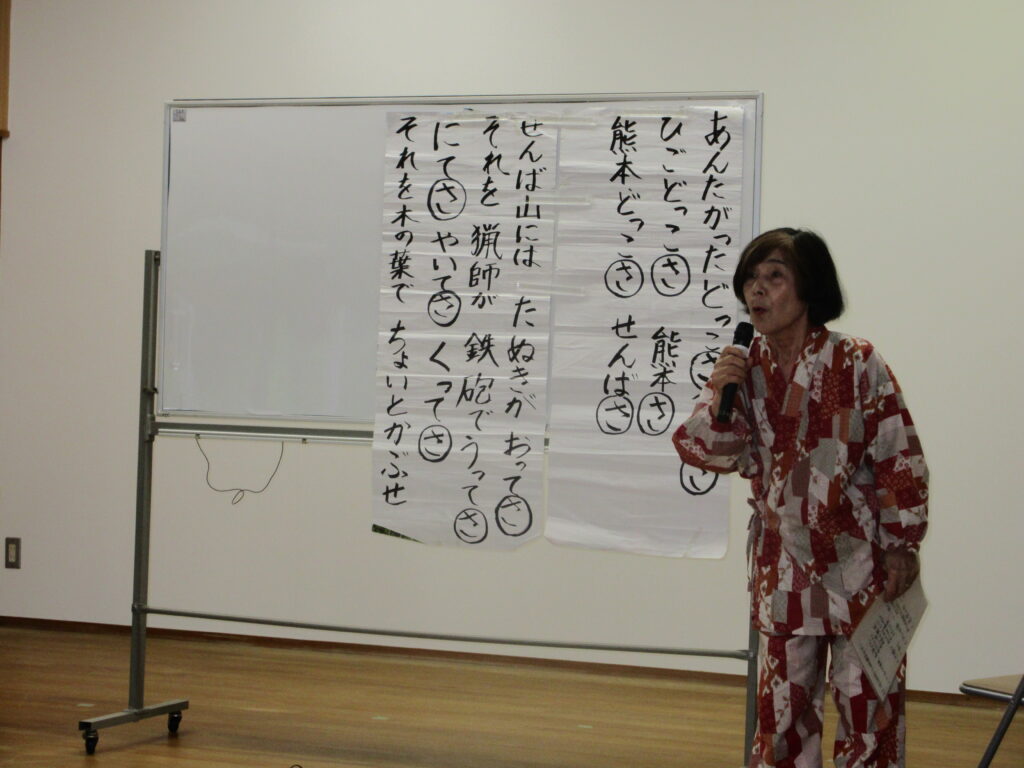 あんたがったどっこさ
ひごどっこさ 熊本さ
熊本どっこさ せんばさ
せんば山には たぬきがおってさ
それを猟師が 鉄砲でうってさ
にてさ やいてさ くってさ
それを木の葉で ちょいとかぶせ